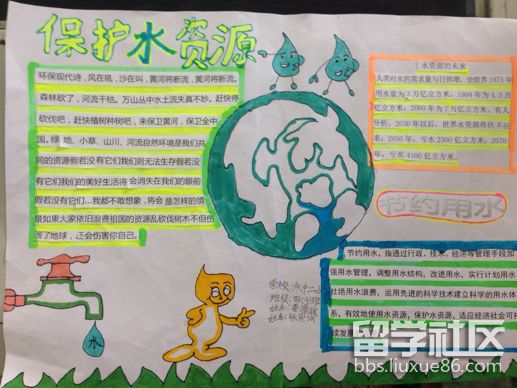 保护水资源
环保现代诗，风在吼，沙在叫，黄河将断流，黄河将断流。
森林砍了，河流干枯。万山丛中水土流失真不妙。赶快停
砍伐吧，赶快植树种树吧，来保卫黄河，保卫全中
国。绿地、小草、山川、河流自然环境是我们共
同的资源假若没有它们我们则无法生存假若没
有它们我们的美好生活将会消失在我们的眼前
假若没有它们…我都不敢想象，将会是怎样的情
景如果大家依旧浪费祖国的资源乱砍伐树木不但伤
害了地球，还会伤害你自己。
水资源的未来
人类对水的需求量与日俱增，全世界1975年
用水量为3万亿立方米，1994年为4.3万
亿立方米，2000年为7万亿立方米。有人
分析，2030年以后，世界水资源将供不应
求：2050年，亏水2300亿立方米；2070
年，亏水4100亿立方米。
节约用水
节约用水，指通过行政、技术、经济等管理手段加
强用水管理，调整用水结构，改进用水，实行计划用水
杜绝用水浪费，运用先进的科学技术建立科学的用水体
系，有效地使用水资源，保护水资源，适应经济社会可持
续发展
学校：
班级：四
姓名：
姓名：
水
留学社区
bbs.liuxue86.com